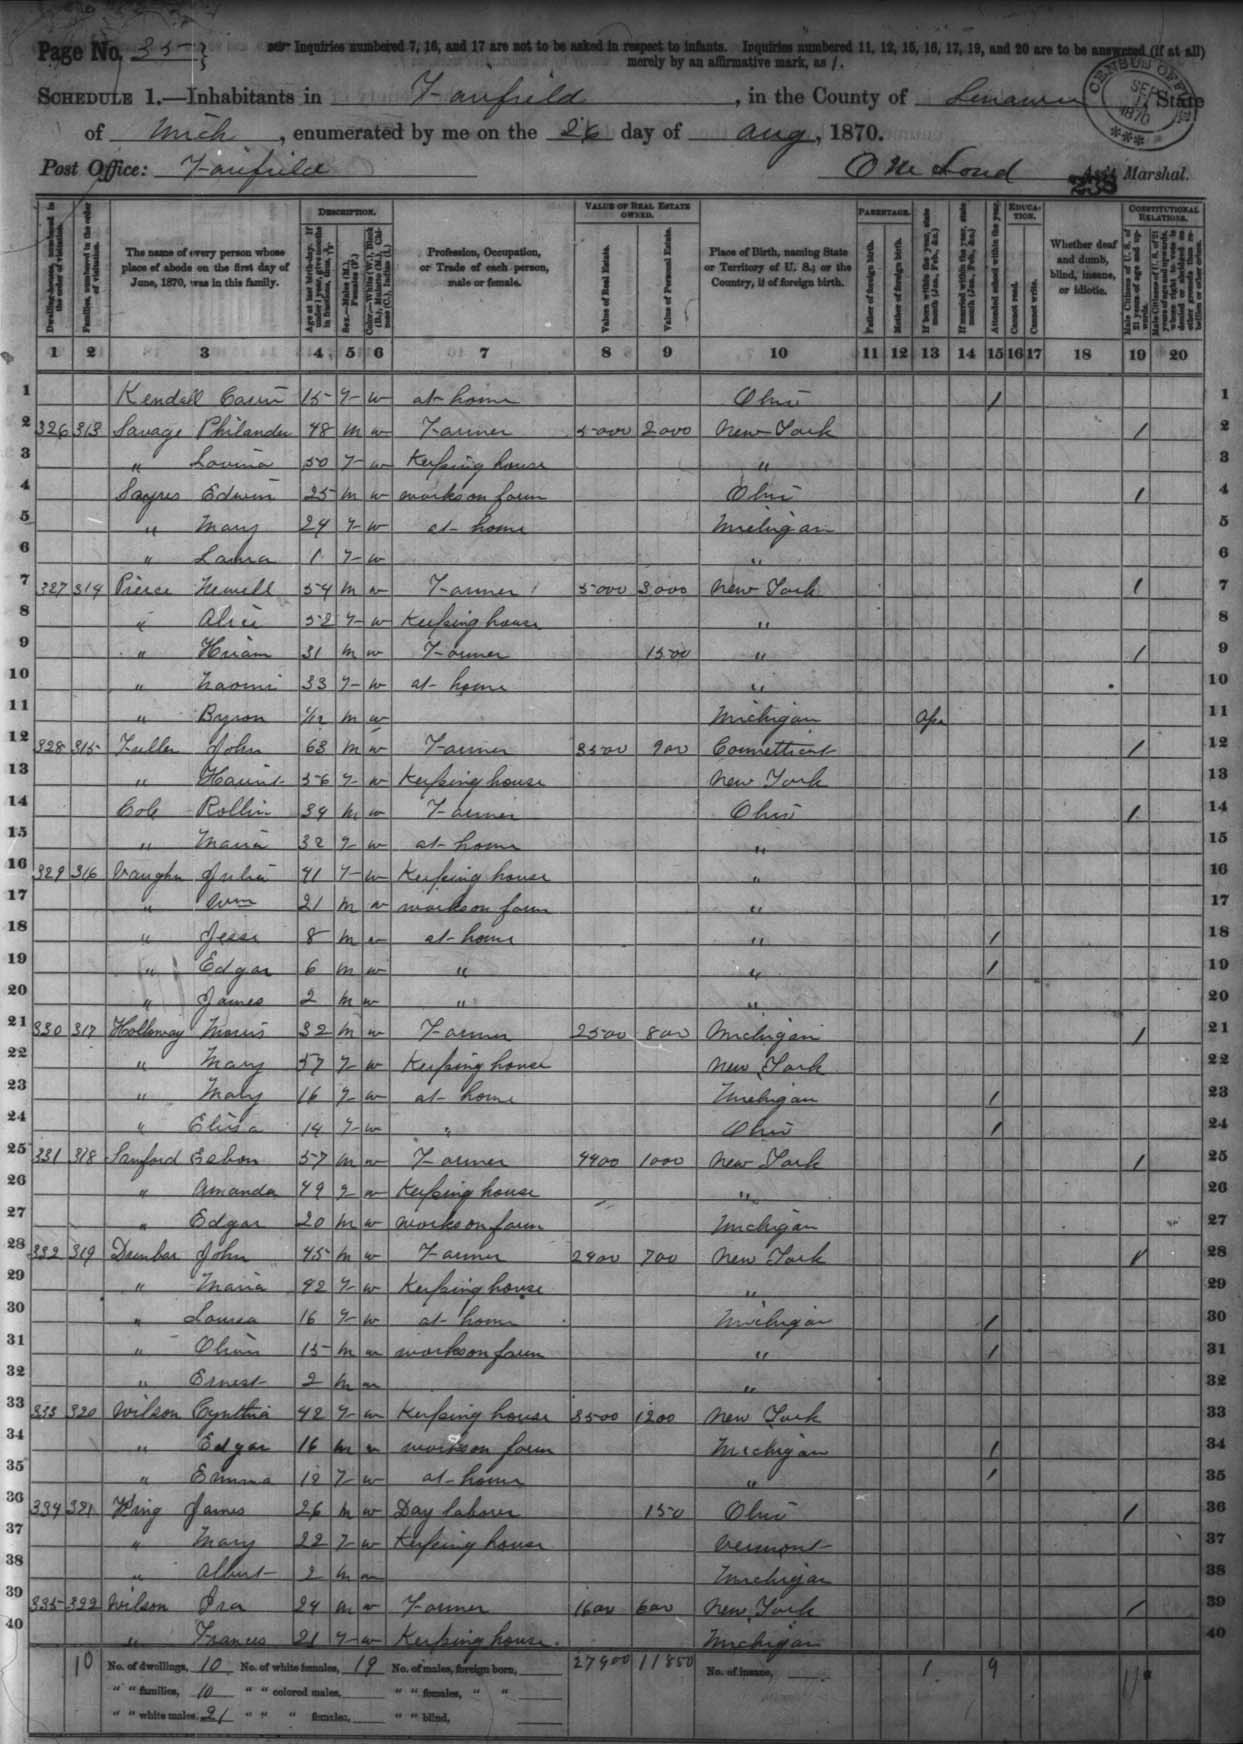 Page No. 35
☞ Inquiries numbered 7, 16, and 17 are not to be asked in respect to infants. Inquiries numbered 11, 12, 15, 16, 17, 19, and 20 are to be answered (if at all)
merely by an affirmative mark, as /.
SCHEDULE 1.—Inhabitants in Fairfield, in the County of Lenawee, State
of Mich, enumerated by me on the 26 day of Aug, 1870.
CENSUS OFFICE SEP 17 1870
Post Office: Fairfield Ass't Marshal.
238
DESCRIPTION. VALUE OF REAL ESTATE OWNED. PARENTAGE. EDUCATION. CONSTITUTIONAL RELATIONS.
Dwelling-houses, numbered in the order of visitation.
Families, numbered in the order of visitation.
The name of every person whose place of abode on the first day of June, 1870, was in this family.
Age at last birth-day. If under 1 year, give months in fractions, thus, 3/12
Sex.—Males (M.), Females (F.)
Color.—White (W.), Black (B.), Mulatto (M.), Chinese (C.), Indian (I.)
Profession, Occupation, or Trade of each person, male or female.
Value of Real Estate.
Value of Personal Estate.
Place of Birth, naming State or Territory of U. S.; or the Country, if of foreign birth.
Father of foreign birth.
Mother of foreign birth.
If born within the year, state month (Jan., Feb., &c.)
If married within the year, state month (Jan., Feb., &c.)
Attended school within the year.
Cannot read.
Cannot write.
Whether deaf and dumb, blind, insane, or idiotic.
Male Citizens of U. S. of 21 years of age and upwards.
1 2 3 4 5 6 7 8 9 10 11 12 13 14 15 16 17 18 19 20
1 Kendall 15 F W at home Ohio / 1
2 326 313 Savage Philander 48 M W Farmer 5000 2000 New York / 2
3 " Lovina 50 F W Keeping house " 3
4 Sayres Edwin 25 M W works on farm Ohio / 4
5 " Mary 24 F W at home Michigan 5
6 " Laura 1 F W " 6
7 327 314 Pierce Newell 54 M W Farmer 5000 3000 New York / 7
8 " Alice 52 F W Keeping house " 8
9 " Hiram 31 M W Farmer 1500 " / 9
10 " Naomi 33 F W at home " 10
11 " Byron M W Michigan Apr 11
12 328 315 Fuller John 63 M W Farmer 3500 900 Connetticut / 12
13 " 56 F W Keeping house New York 13
14 Cole Rollin 34 M W Farmer Ohio / 14
15 " Maria 32 F W at home " 15
16 329 316 Vaughn Julia 41 F W Keeping house " 16
17 " Wm 21 M W works on farm " 17
18 " Jesse 8 M W at home " / 18
19 " Edgar 6 M W " " / 19
20 " James 2 M W " " 20
21 330 317 Holloway Morris 32 M W Farmer 2500 800 Michigan / 21
22 " Mary 57 F W Keeping house New York 22
23 " Mary 16 F W at home Michigan / 23
24 " Eliza 14 F W " Ohio / 24
25 331 318 Sanford Esbon 57 M W Farmer 4400 1000 New York / 25
26 " Amanda 49 F W Keeping house " 26
27 " Edgar 20 M W works on farm Michigan 27
28 332 319 Dunbar John 45 M W Farmer 2400 700 New York / 28
29 " Maria 42 F W Keeping house " 29
30 " Louisa 16 F W at home Michigan / 30
31 " 15 M W works on farm " / 31
32 " Ernest 2 M W " 32
33 333 320 Wilson Cynthia 42 F W Keeping house 3500 1200 New York 33
34 " Edgar 16 M W works on farm Michigan / 34
35 " Emma 12 F W at home " / 35
36 334 321 King James 26 M W Day laborer 150 Ohio / 36
37 " Mary 22 F W Keeping house Vermont 37
38 " Albert 2 M W Michigan 38
39 335 322 Wilson Ira 24 M W Farmer 1600 600 New York / 39
40 " Frances 21 F W Keeping house Michigan 40
10 No. of dwellings, 10 No. of white females, 19 No. of males, foreign born, 27900 11850 No. of insane, 1 9 11
" " families, 10 " " colored males, " " females, " "
" " white males, 21 " " " females, " " blind,